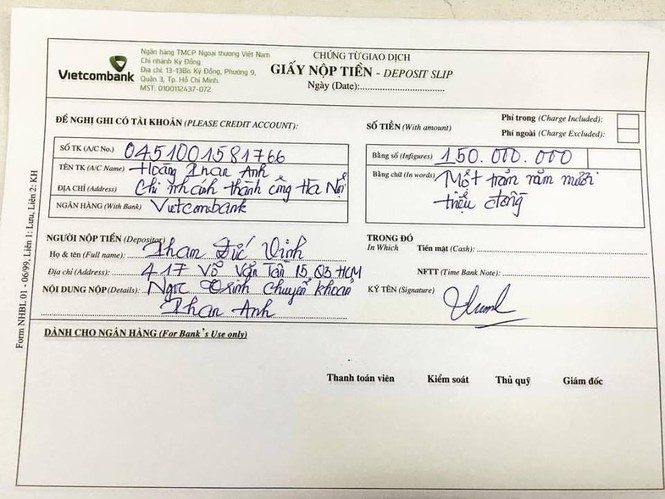 Vietcombank
Ngân hàng TMCP Ngoại thương Việt Nam
Chi nhánh Kỳ Đồng
Địa chỉ: 13-13Bis Kỳ Đồng, Phường 9,
Quận 3, Tp. Hồ Chí Minh
MST: 0100112437-072
CHỨNG TỪ GIAO DỊCH
GIẤY NỘP TIỀN - DEPOSIT SLIP
Ngày (Date):
Phí trong (Charge Included):
Phí ngoài (Charge Excluded):
ĐỀ NGHỊ GHI CÓ TÀI KHOẢN (PLEASE CREDIT ACCOUNT):
SỐ TIỀN (With amount)
SỐ TK (A/C No.) 0451001581766
TÊN TK (A/C Name) Hoàng Phan Anh
ĐỊA CHỈ (Address) Chi nhánh thành công Hà Nội
NGÂN HÀNG (With Bank) Vietcombank
Bằng số (Infigures) 150.000.000
Bằng chữ (In words) Một trăm năm mươi
triệu đồng
NGƯỜI NỘP TIỀN (Depositor)
Họ & tên (Full name): Phan Đức Vinh
Địa chỉ (Address): 417 Võ Văn Tần P5, Q3 HCM
NỘI DUNG NỘP (Details): Ngọc Trinh chuyển khoản
Phan Anh
TRONG ĐÓ
In Which
Tiền mặt (Cash):
NFTT (Time Bank Note):
KÝ TÊN (Signature)
DÀNH CHO NGÂN HÀNG (For Bank's Use only)
Thanh toán viên Kiểm soát Thủ quỹ Giám đốc
Form NHBL 01 - 06/99, Liên 1: Lưu, Liên 2: KH